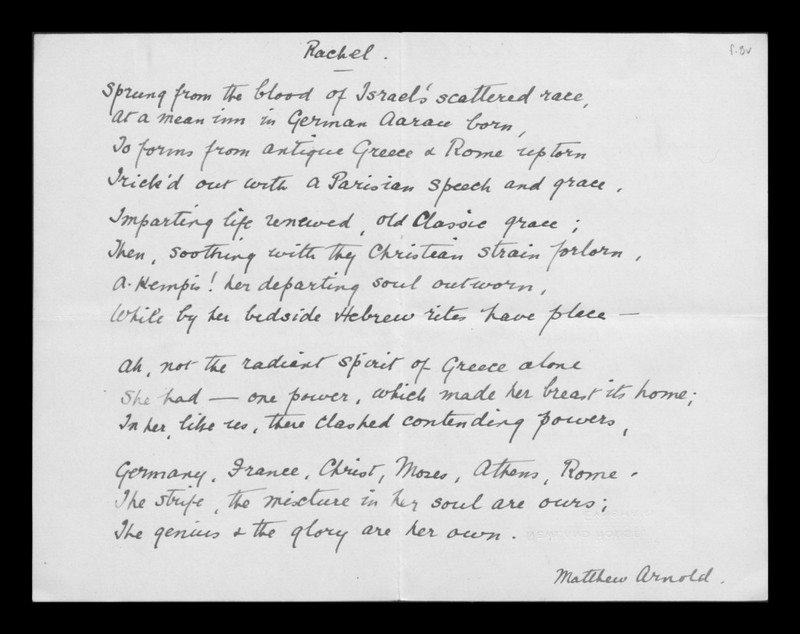 Rachel.
Sprung from the blood of Israel's scattered race,
At a mean inn in German Aarau born,
To forms from antique Greece & Rome uptorn
Trick'd out with a Parisian speech and grace,
Imparting life renewed, old Classic grace;
Then, soothing with thy Christian strain forlorn,
A-Kempis! her departing soul outworn,
While by her bedside Hebrew rites have place —
Ah, not the radiant spirit of Greece alone
She had — one power, which made her breast its home;
In her, like us, there clashed contending powers,
Germany, France, Christ, Moses, Athens, Rome.
The strife, the mixture in her soul are ours;
The genius & the glory are her own.
Matthew Arnold.